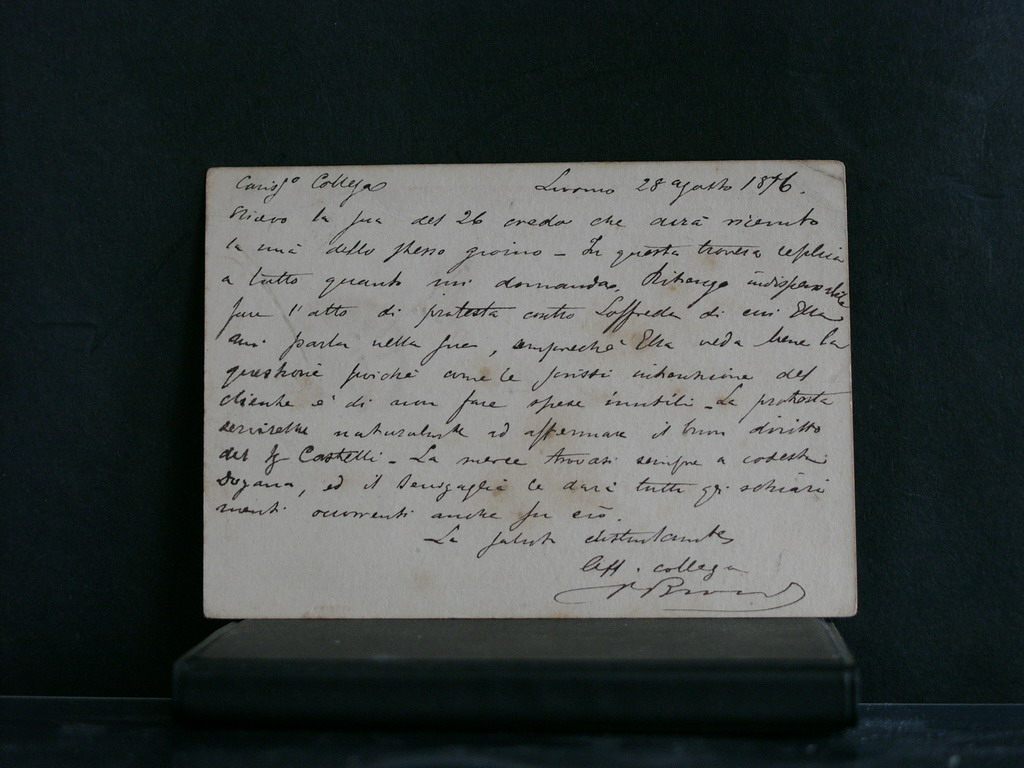 Cariss.º Collega Livorno 28 agosto 1876.
Ricevo la sua del 26 credo che avrà ricevuto
la mia dello stesso giorno - In questa troverà replica
a tutto quanto mi domanda. Ritengo indispensabile
fare l'atto di protesta contro Loffreda di cui Ella
mi parla nella sua, sempreché Ella veda bene la
questione poiché come le scrissi intenzione del
cliente è di non fare spese inutili - La protesta
servirebbe naturalmente ad affermare il buon diritto
del Sig Castelli - La merce trovasi sempre a codesta
Dogana, ed il Senigaglia le darà tutti gli schiari
menti occorrenti anche su ciò.
La saluto distintamente
Aff. collega